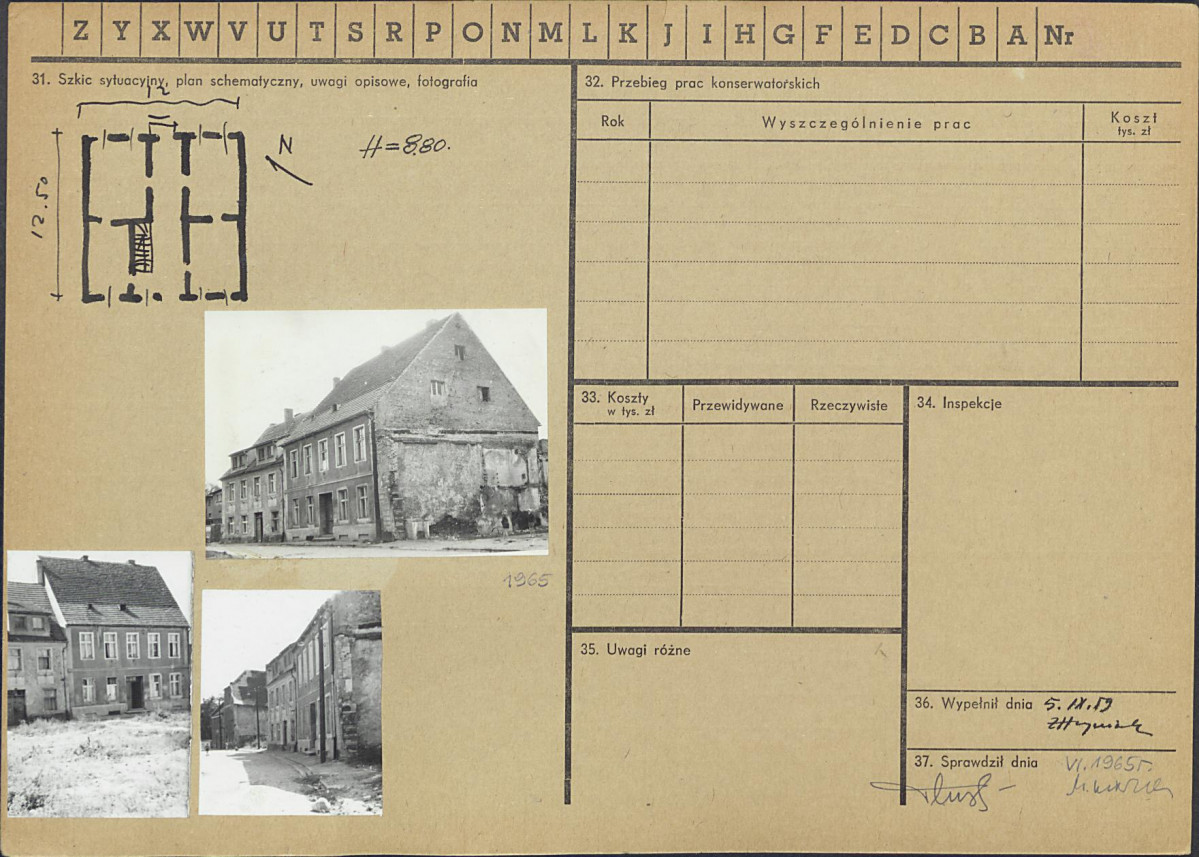 Z Y X W V U T S R P O N M L K J I H G F E D C B A Nr
31. Szkic sytuacyjny, plan schematyczny, uwagi opisowe, fotografia
12
12.50
N
H=8.80.
1965
32. Przebieg prac konserwatorskich
Rok
Wyszczególnienie prac
Koszt
tys. zł
33. Koszty
w tys. zł
Przewidywane
Rzeczywiste
34. Inspekcje
35. Uwagi różne
36. Wypełnił dnia 5. IX. 59
37. Sprawdził dnia VI. 1965 r.